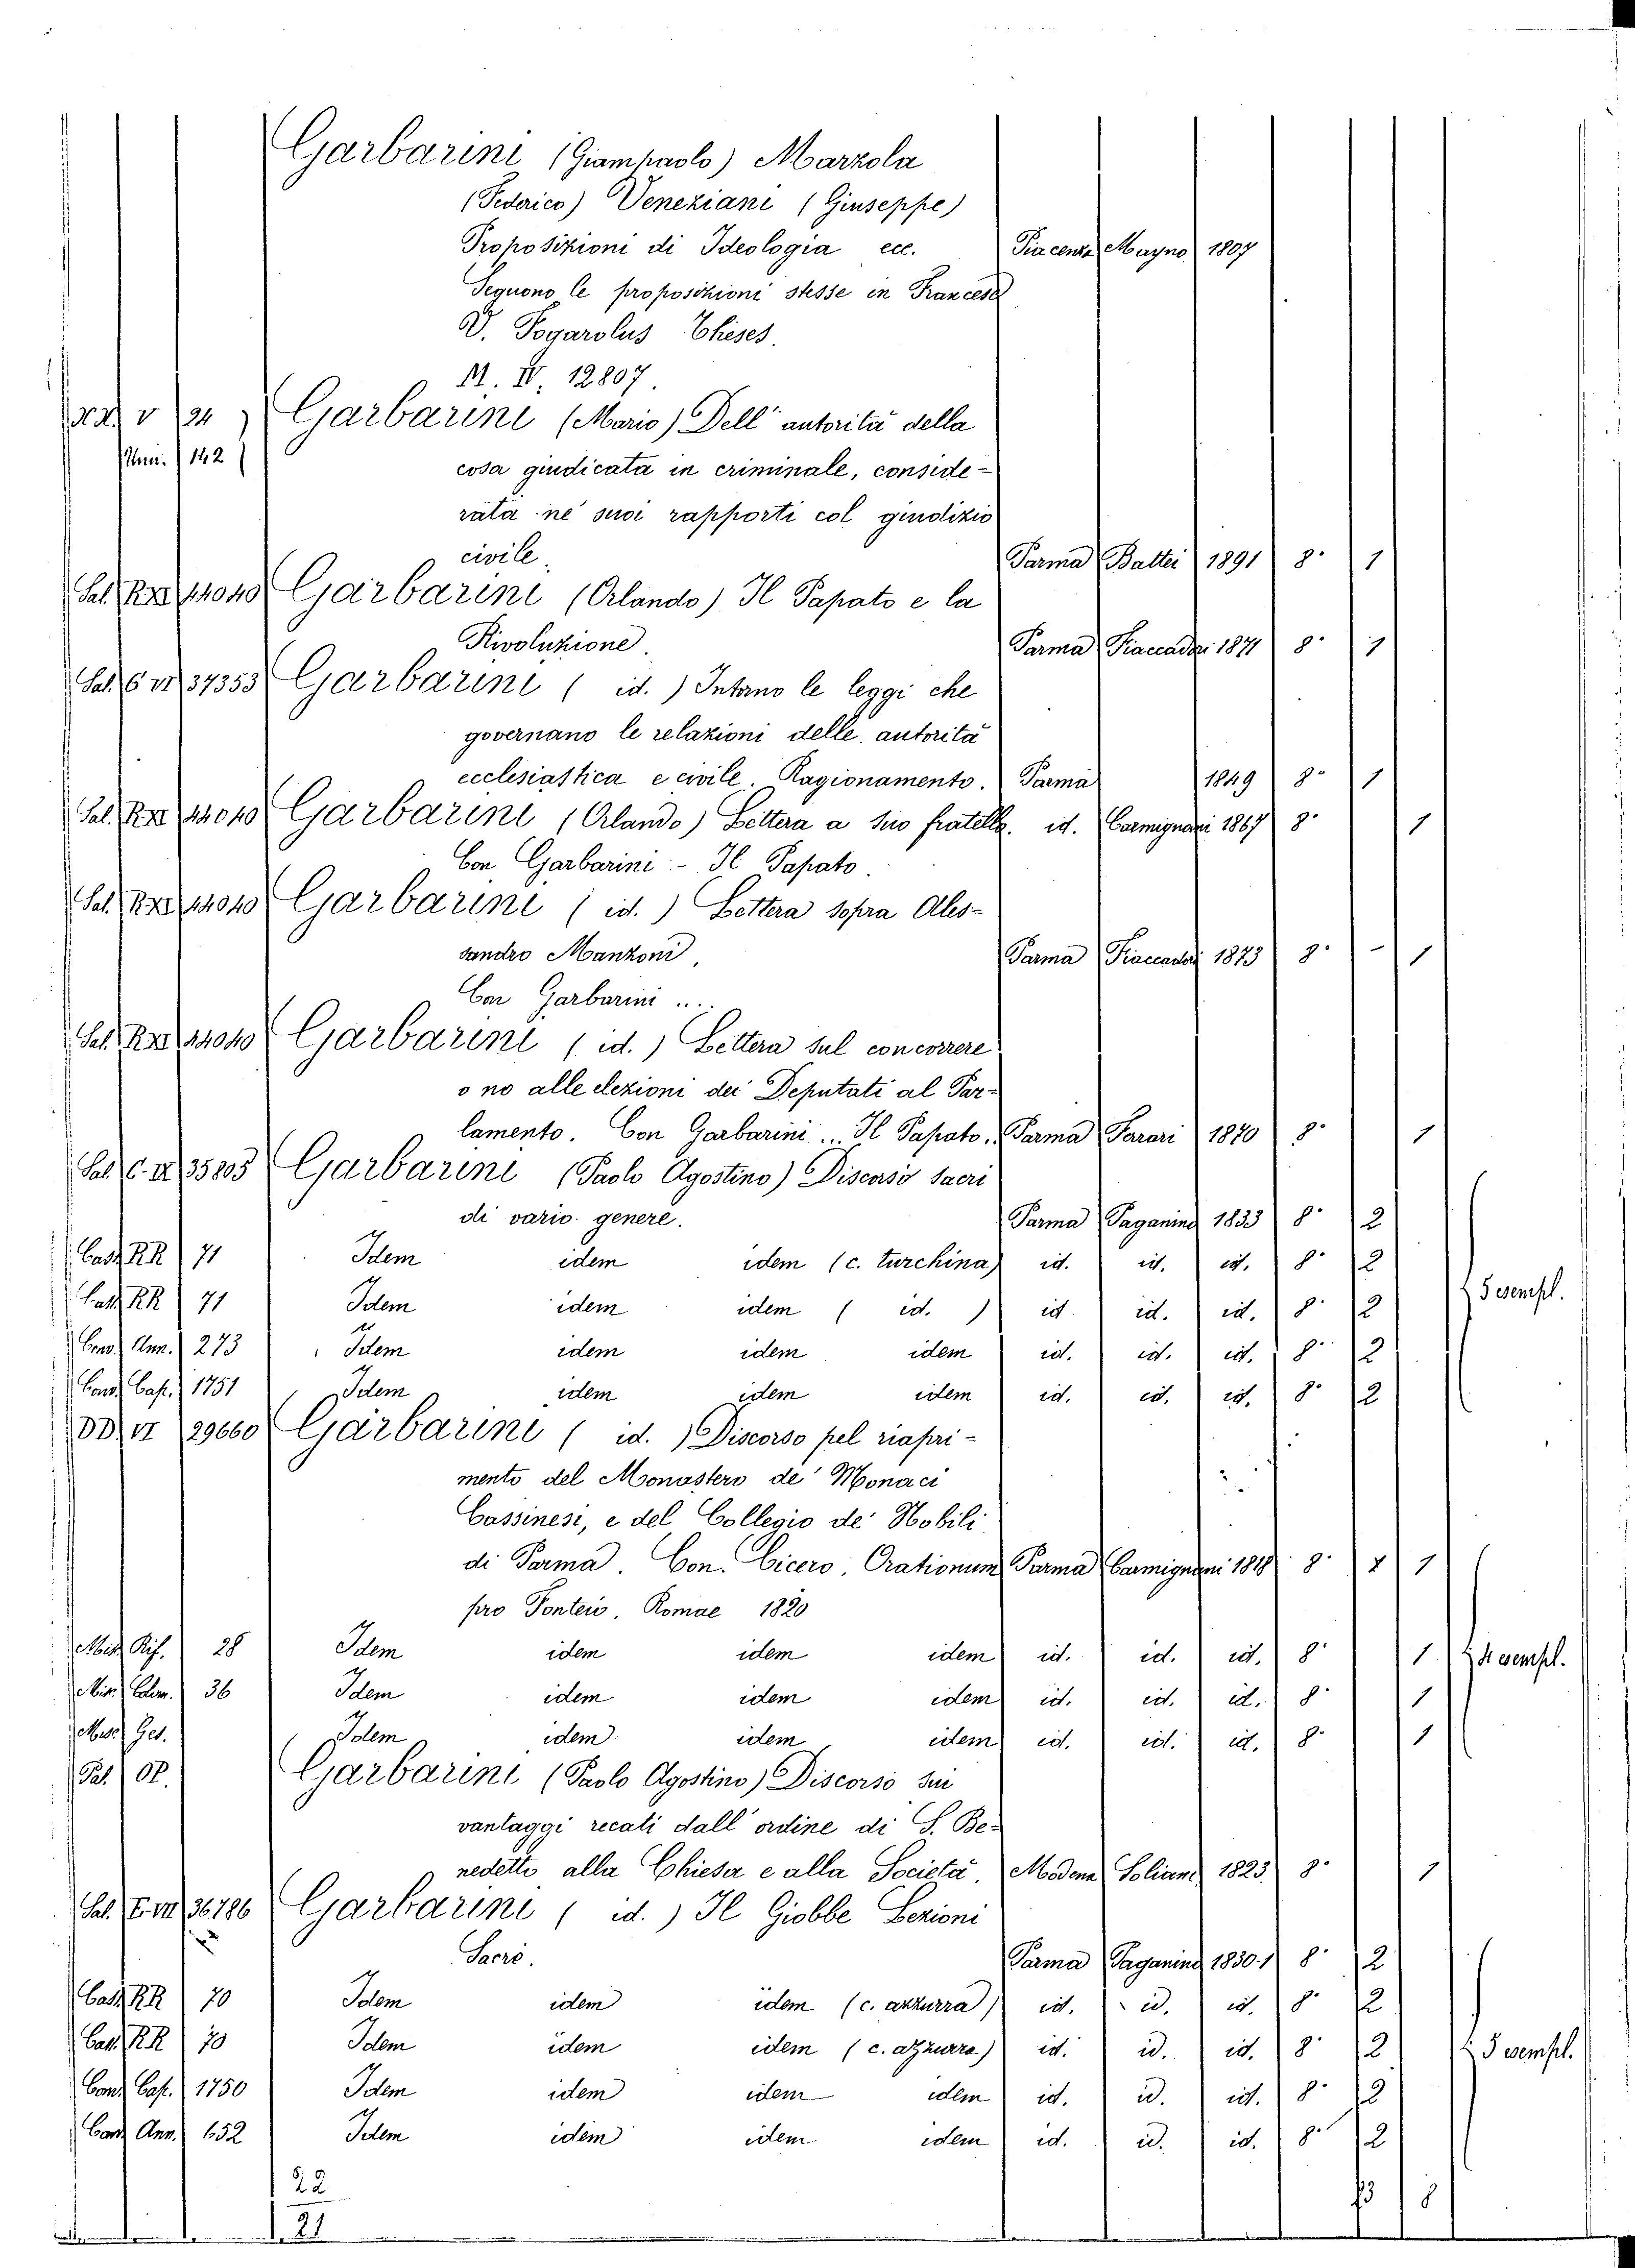 Garbarini (Giampaolo) Marzola
(Federico) Veneziani (Giuseppe)
Proposizioni di Ideologia ecc. Piacenza Mayno 1807
Seguono le proposizioni stesse in Francese
V. Pogarolus Theses.
M. IV. 12807.
V 24 Garbarini (Mario) Dell' autorità della
Ann. 142 cosa giudicata in criminale, conside-
rata ne' suoi rapporti col giudizio
civile. Parma Battei 1891 8° 1
Sal. R XI 44040 Garbarini (Orlando) Il Papato e la
Rivoluzione. Parma Fiaccadori 1871 8° 1
Sal. G VI 37353 Garbarini ( id. ) Intorno le leggi che
governano le relazioni delle autorità
ecclesiastica e civile. Ragionamento. Parma 1849 8° 1
Sal. R XI 44040 Garbarini (Orlando) Lettera a suo fratello. id. Carmignani 1867 8° 1
Con Garbarini - Il Papato.
Sal. R XI 44040 Garbarini ( id. ) Lettera sopra Ales-
sandro Manzoni. Parma Fiaccadori 1873 8° - 1
Con Garbarini ...
Sal. R XI 44040 Garbarini ( id. ) Lettera sul concorrere
o no alle elezioni dei Deputati al Par-
lamento. Con Garbarini ... Il Papato. Parma Ferrari 1870 8° 1
Sal. C. IX 35805 Garbarini (Paolo Agostino) Discorsi sacri
di vario genere. Parma Paganini 1833 8° 2
Cas. RR 71 Idem idem idem (c. turchina) id. id. id. 8° 2
Cas. RR 71 Idem idem idem ( id. ) id. id. id. 8° 2
5 esempl.
Conv. Ann. 273 Idem idem idem idem id. id. id. 8° 2
Conv. Cap. 1751 Idem idem idem idem id. id. id. 8° 2
DD. VI 29660 Garbarini ( id. ) Discorso pel riapri-
mento del Monastero de' Monaci
Cassinesi, e del Collegio de' Nobili
di Parma. Con. Cicero, Orationum Parma Carmignani 1818 8° 1
pro Ponteio. Romae 1820
Misc. Rif. 28 Idem idem idem idem id. id. id. 8° 1
4 esempl.
Misc. 36 Idem idem idem idem id. id. id. 8° 1
Misc. Ges. Idem idem idem idem id. id. id. 8° 1
Pal. Garbarini (Paolo Agostino) Discorso sui
vantaggi recati dall' ordine di S. Be-
nedetto alla Chiesa e alla Società. Modena Soliani 1823 8° 1
Sal. E. VII 36786 Garbarini ( id. ) Il Giobbe Lezioni
Sacre. Parma Paganini 1830-1 8° 2
Cas. RR 70 Idem idem idem (c. azzurra) id. id. id. 8° 2
Cas. RR 70 Idem idem idem (c. azzurra) id. id. id. 8° 2
5 esempl.
Conv. Cap. 1750 Idem idem idem idem id. id. id. 8° 2
Conv. Ann. 652 Idem idem idem idem id. id. id. 8° 2
22
21
8